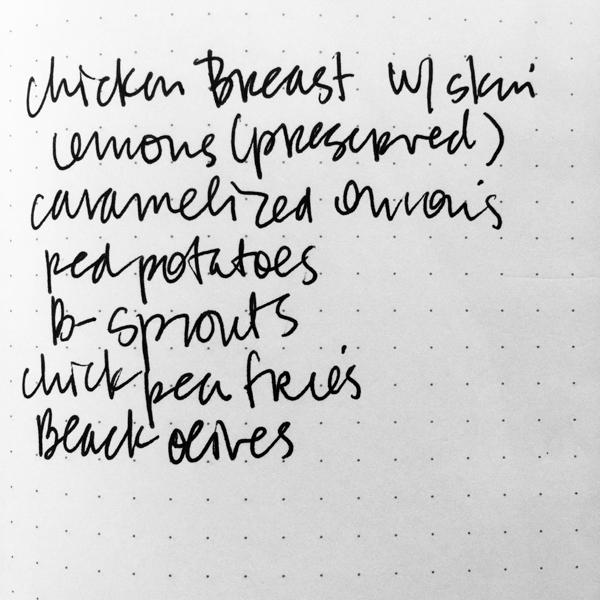 chicken Breast w/ skin
lemons (preserved)
caramelized onions
red potatoes
B-sprouts
chickpea fries
Black olives